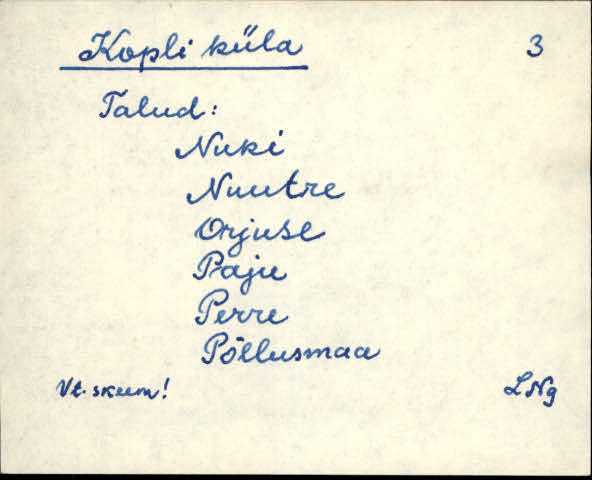 Kopli küla 3
Talud:
Nuki
Nuutre
Orjuse
Paju
Perre
Põllusmaa
Vt. skeem! LNg